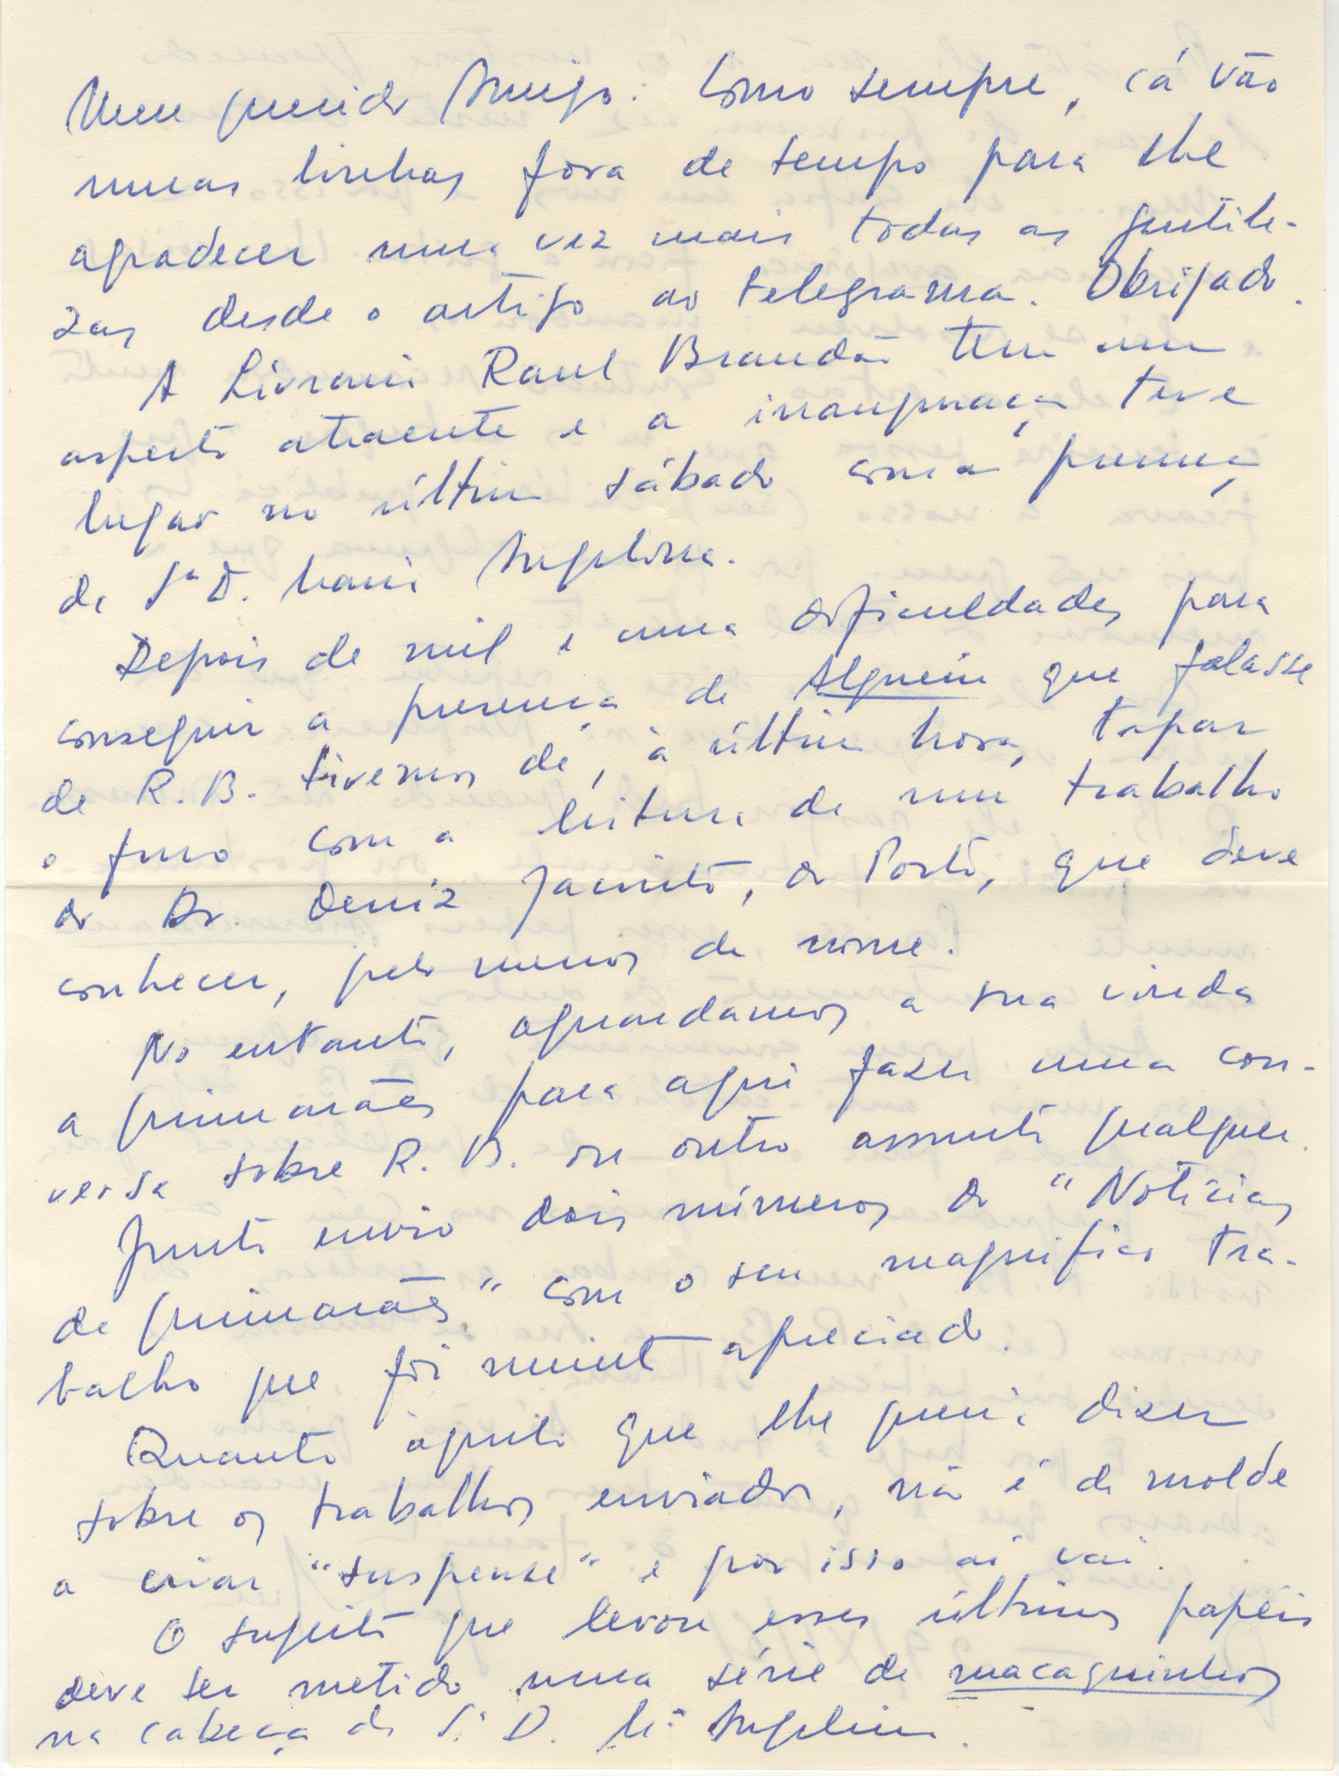 Meu querido Amigo: Como sempre, cá vão
umas linhas fora de tempo para lhe
agradecer uma vez mais todas as gentile-
zas desde o artigo ao telegrama. Obrigado.
A Livraria Raul Brandão tem um
aspecto atraente e a inauguração teve
lugar no último sábado com a presença
da Sª D. Maria Angelina.
Depois de mil e uma dificuldades para
conseguir a presença de Alguém que falasse
de R. B. tivemos de, à última hora, tapar
o furo com a leitura de um trabalho
do Dr. Deniz Jacinto, do Porto, que deve
conhecer, pelo menos de nome.
No entanto, aguardamos a sua vinda
a Guimarães para aqui fazer uma con-
versa sobre R. B. ou outro assunto qualquer.
Junto envio dois números do "Notícias
de Guimarães" com o seu magnífico tra-
balho que foi muito apreciado.
Quanto àquilo que lhe queria dizer
sobre os trabalhos enviados, não é de molde
a criar "suspense" e por isso aí vai.
O sujeito que levou esses últimos papéis
deve ter metido uma série de macaquinhos
na cabeça da S.ª D. M.ª Angelina.